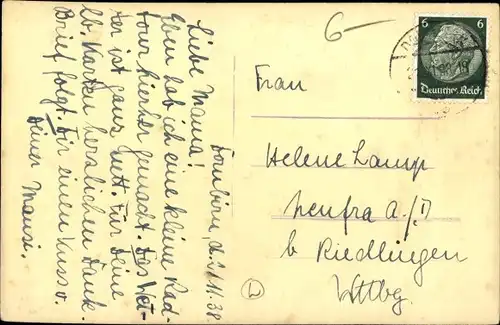 Dornbirn, d. 2.11.38.
Liebe Mama!
Eben hab ich eine kleine Rad-
tour hierher gemacht. Das Wet-
ter ist ganz gutt. Für Deine
lb. Karten herzlichen Dank.
Brief folgt. Dir einen Kuss v.
Deiner Mausi.
6—
6 6
Deutsches Reich
Frau
Helene Lamp
Neufra a./D
b Riedlingen
Wttbg
L